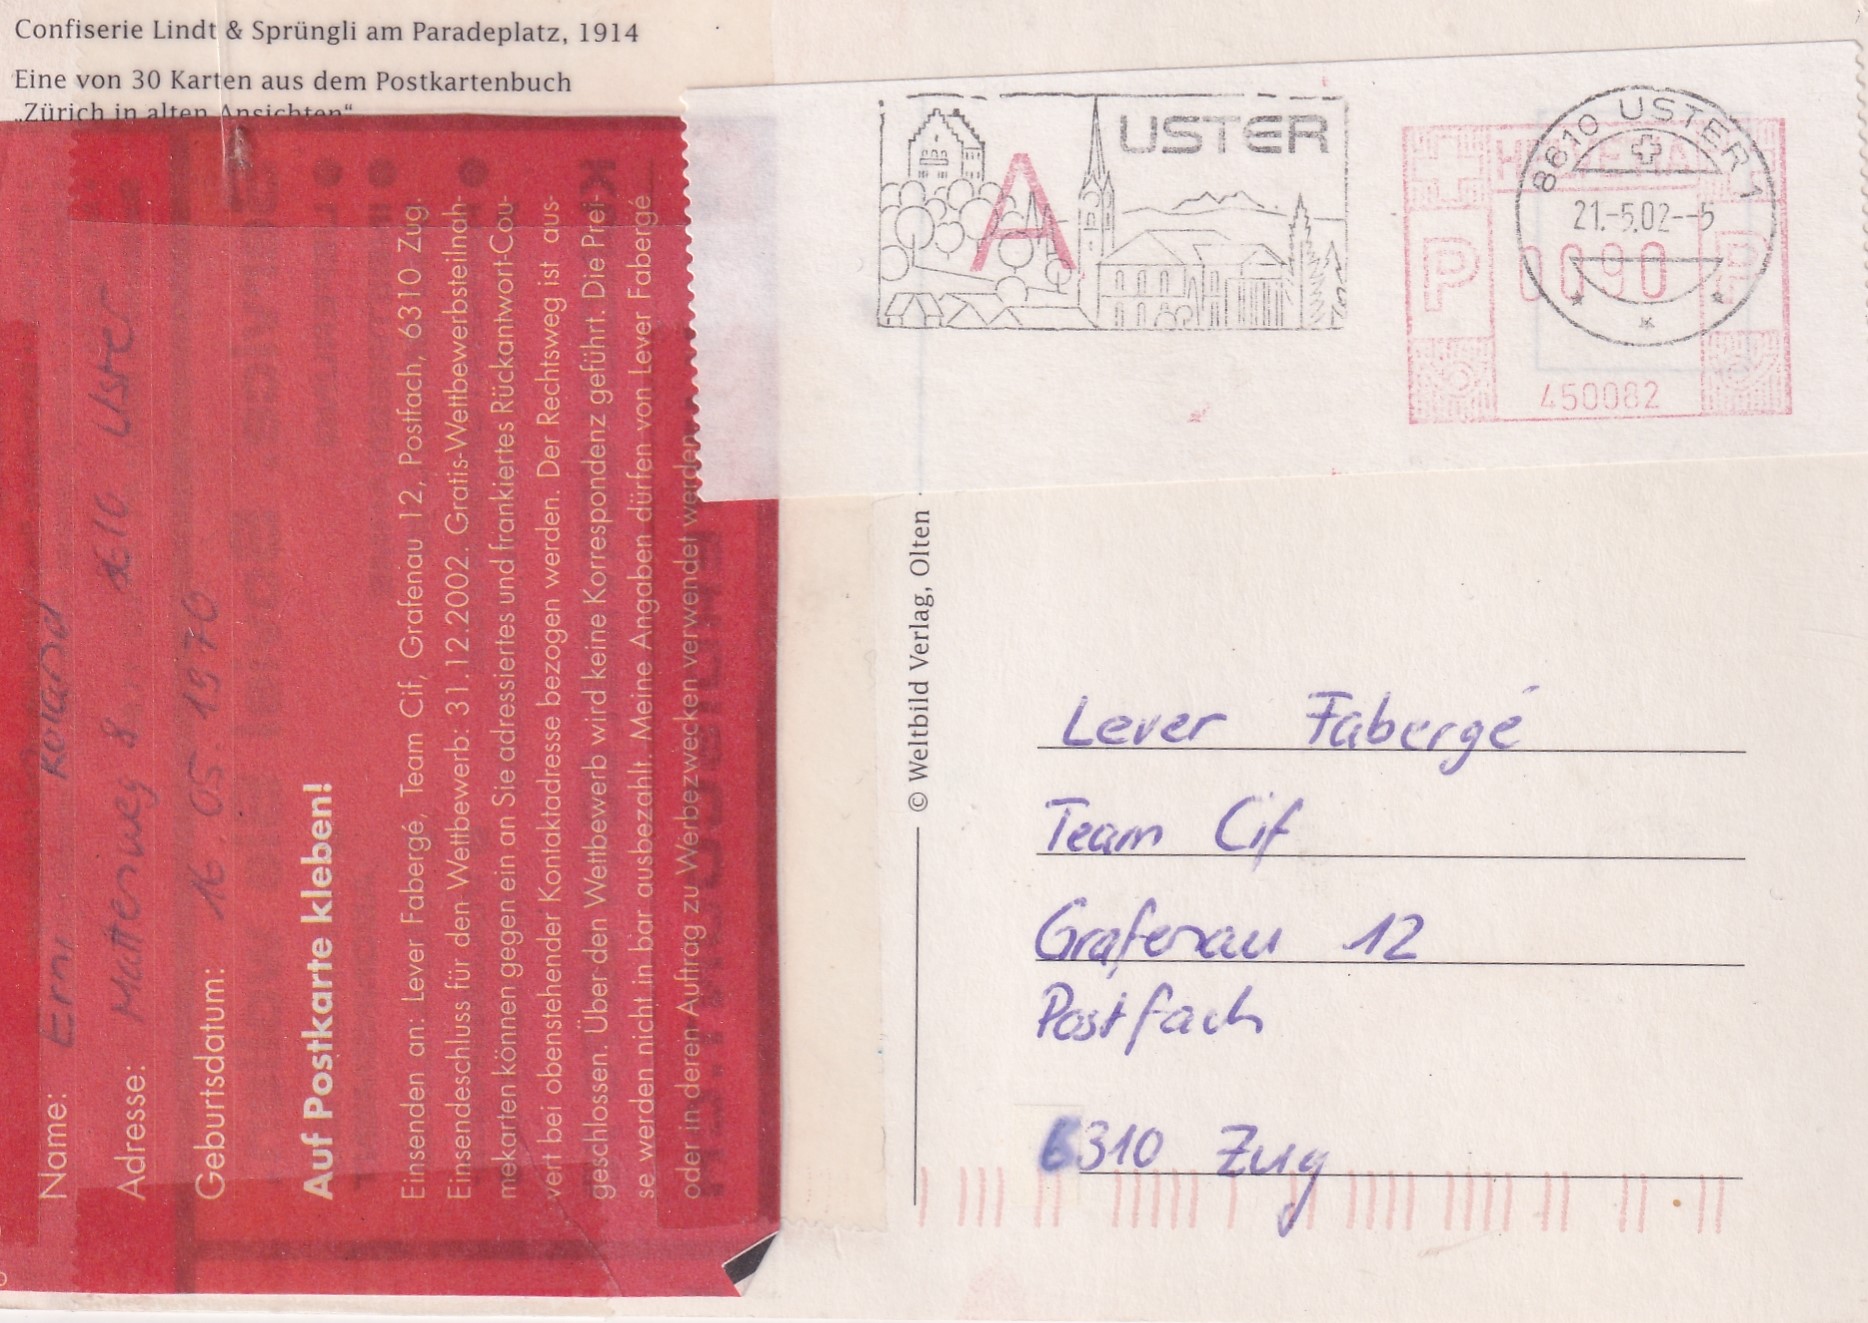 Confiserie Lindt & Sprüngli am Paradeplatz, 1914
Eine von 30 Karten aus dem Postkartenbuch
„Zürich in alten Ansichten“
USTER
A
8610 USTER 1
21.-5.02--5
HELVETIA
P 0090 P
450082
Name: Erni Roland
Adresse: Mattenweg 8 8610 Uster
Geburtsdatum: 16.05.1970
Auf Postkarte kleben!
Einsenden an: Lever Fabergé, Team Cif, Grafenau 12, Postfach, 6310 Zug.
Einsendeschluss für den Wettbewerb: 31.12.2002. Gratis-Wettbewerbsteilnah-
mekarten können gegen ein an Sie adressiertes und frankiertes Rückantwort-Cou-
vert bei obenstehender Kontaktadresse bezogen werden. Der Rechtsweg ist aus-
geschlossen. Über den Wettbewerb wird keine Korrespondenz geführt. Die Prei-
se werden nicht in bar ausbezahlt. Meine Angaben dürfen von Lever Fabergé
oder in deren Auftrag zu Werbezwecken verwendet werden.
© Weltbild Verlag, Olten
Lever Fabergé
Team Cif
Grafenau 12
Postfach
6310 Zug